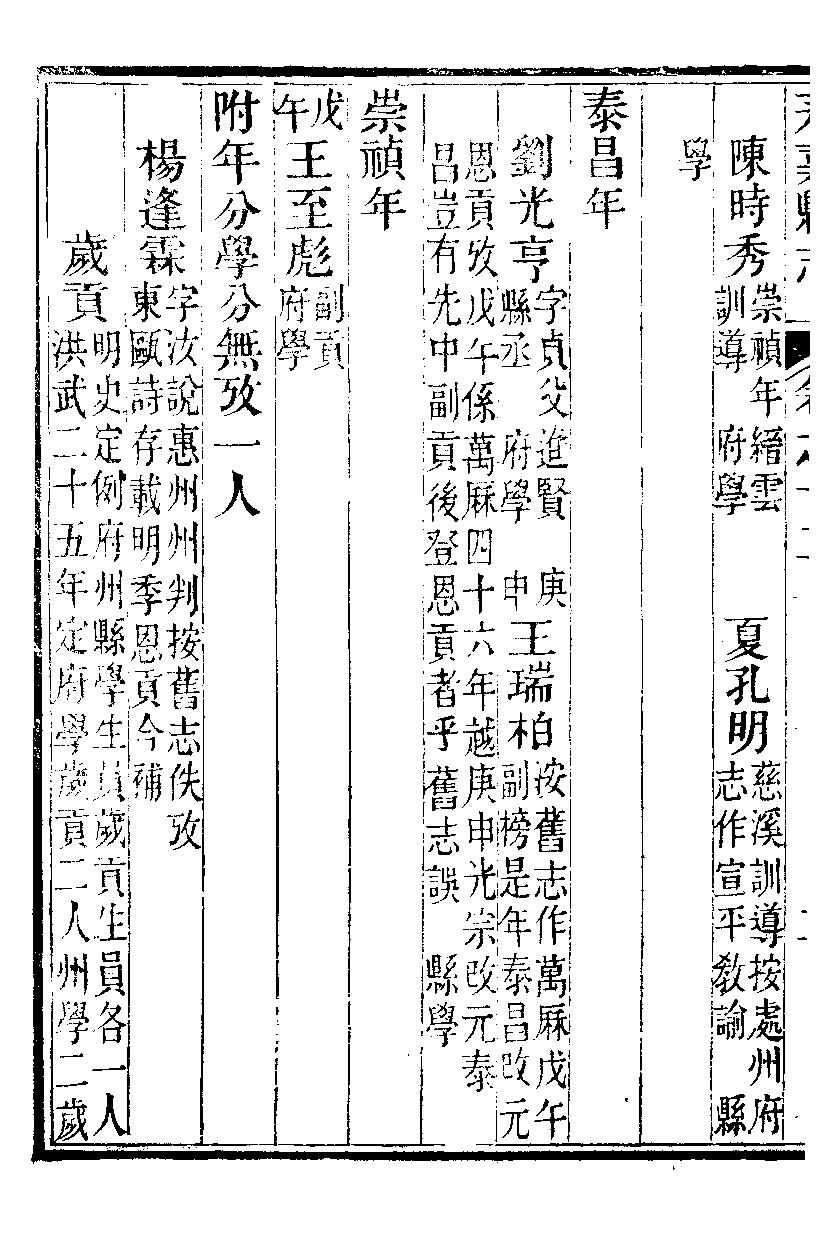 陳時秀崇禎年縉雲訓導　府學　夏孔明慈溪訓導按處州府志作宣平敎諭　縣
學
泰昌年
劉光亨字貞父進賢縣丞　府學　庚申王瑞柏按舊志作萬厤戊午副榜是年泰昌改元
恩貢攷戊午係萬厤四十六年越庚申光宗改元泰
昌豈有先中副貢後登恩貢者乎舊志誤　縣學
崇禎年
戊午王至彪副貢府學
附年分學分無攷一人
楊逢霖字汝說惠州州判按舊志佚攷東甌詩存載明季恩貢今補
歲貢明史定例府州縣學生員歲貢生員各一人洪武二十五年定府學歲貢二人州學二歲